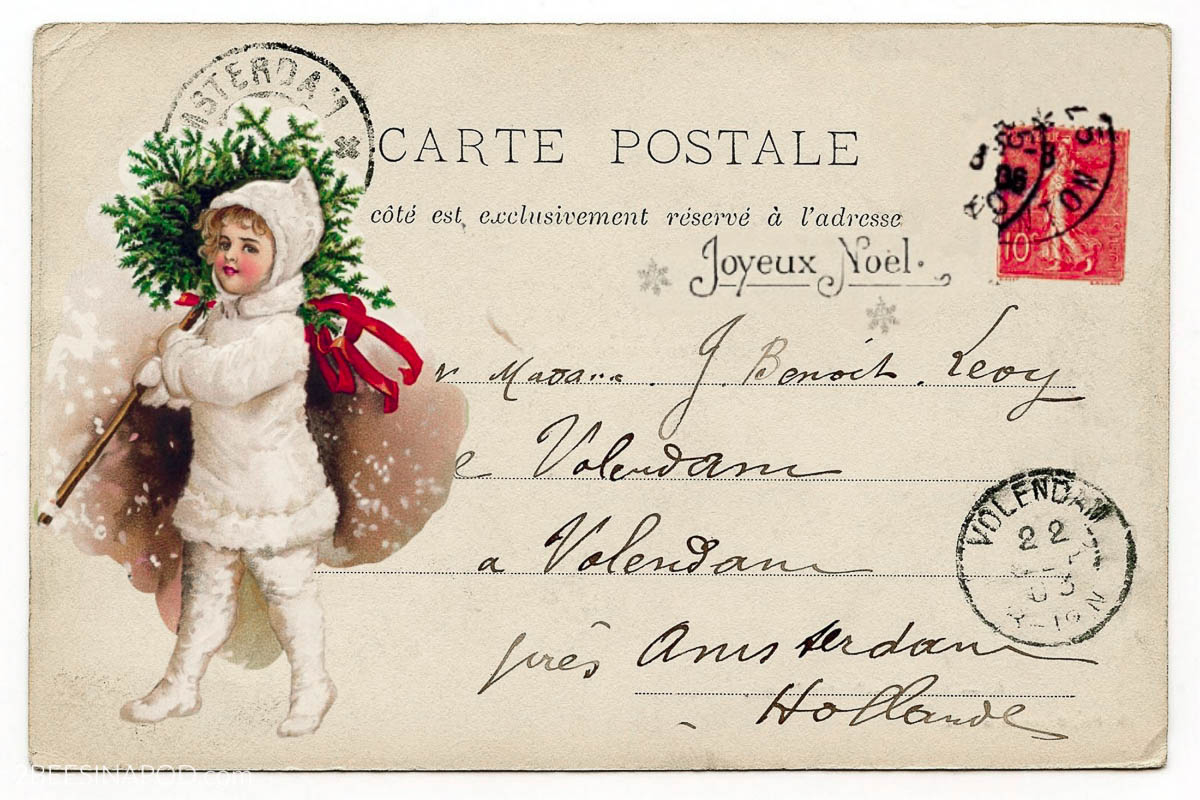 AMSTERDAM
CARTE POSTALE
côté est exclusivement réservé à l'adresse
Joyeux Noël.
10
J. Benoit Levy
e Volendam
a Volendam
près Amsterdam
Hollande
VOLENDAM
22
03
2BEESINAPOD.com